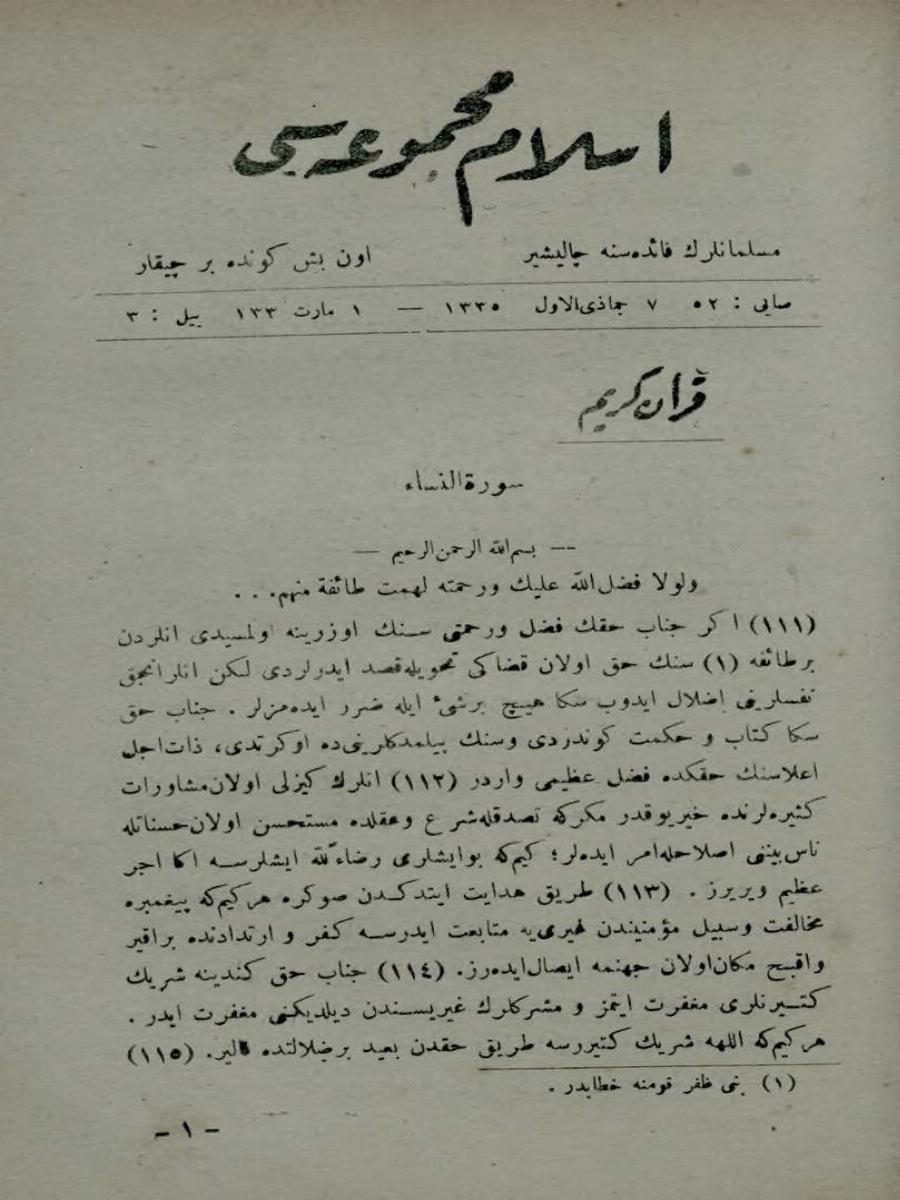 اسلام مجموعه‌سی
مسلمانلرك فائده‌سنه چالیشیر اون بش كونده بر چیقار
صایی : ٥٢ ٧ جماذی‌الاول ١٣٣٥ — ١ مارت ١٣٣ ییل : ٣
قرآن كریم
سورة النساء
— بسم‌الله الرحمن‌الرحیم —
ولولا فضل‌الله علیك ورحمته لهمت طائفة منهم...
(١١١) اكر جناب حقك فضل ورحمتی سنك اوزرینه اولمسیدی انلردن
برطائفه (١) سنك حق اولان قضاكی تحویله‌قصد ایدرلردی لكن انلرانجق
نفسلرینی إضلال ایدوب سكا هیچ برشیء ایله ضرر ایده‌مزلر . جناب حق
سكا كتاب و حكمت كوندردی وسنك بیلمدكلرینی‌ده اوكرتدی، ذات‌اجل
اعلاسنك حقكده فضل عظیمی واردر (١١٢) انلرك كیزلی اولان‌مشاورات
كثیره‌لرنده خیریوقدر مكركه تصدقله‌شرع وعقلده مستحسن اولان‌حسناتله
ناس‌بیننی اصلاحله‌امر ایده‌لر؛ كیم‌كه بوایشلری رضاءلله ایشلرسه اكا اجر
عظیم ویریرز . (١١٣) طریق هدایت ایتدكدن صوكره هركیم‌كه پیغمبره
مخالفت وسبیل مؤمنیندن غیری‌یه متابعت ایدرسه كفر و ارتدادنده براقیر
واقبح مكان‌اولان جهنمه ایصال‌ایده‌رز. (١١٤) جناب حق كندینه شریك
كتیرنلری مغفرت ایتمز و مشركلرك غیریسندن دیلدیكنی مغفرت ایدر .
هركیم‌كه اللهه شریك كتیررسه طریق حقدن بعید برضلالتده قالیر. (١١٥)
(١) بنی ظفر قومنه خطابدر .
- ١ -